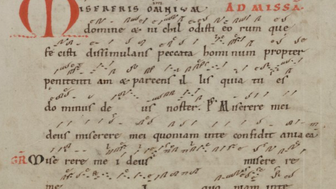 MISERERIS OMNIUM AD MISSA
domine & ni chil odisti eo rum que
fe cisti dissimulans peccata hominum propter
penitenti am & parcens il lis qui a es
dominus de us noster. Ps Miserere mei
deus miserere mei quoniam in te confidit anima
GR Mise rere me i deus misere re
me i quo ni am in te